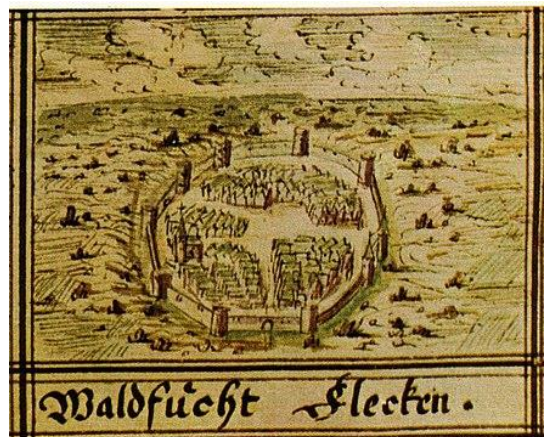 Waldfücht Flecken.